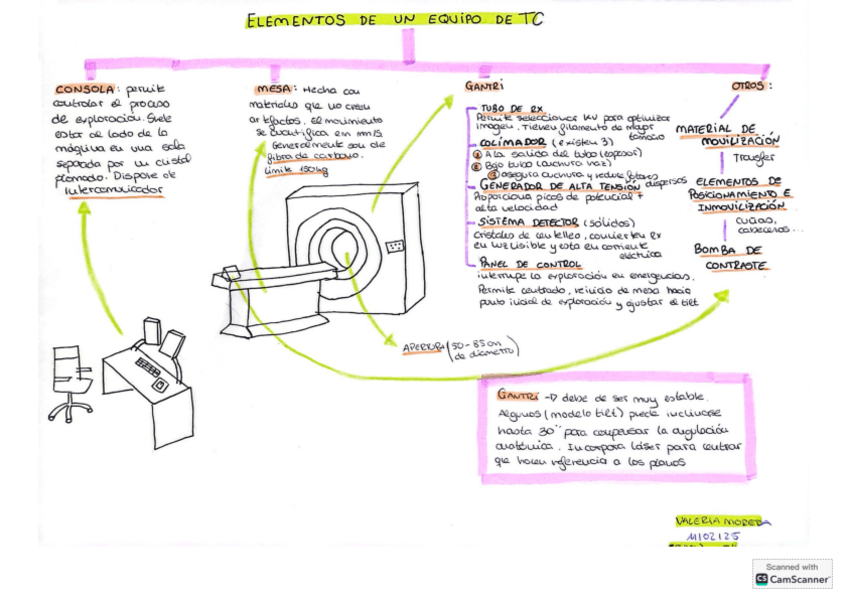 ELEMENTOS DE UN EQUIPO DE TC
CONSOLA: permite
controlar el proceso
de exploración. Suele
estar al lado de la
máquina en una sala
separada por un cristal
plomado. Dispone de
intercomunicador
MESA: Hecha con
materiales que no creen
artefactos. El movimiento
se cuantifica en mm/s.
Generalmente son de
fibra de carbono.
Límite 150kg
GANTRI
TUBO DE RX
Permite seleccionar kV para optimizar
imagen. Tienen filamento de mayor
tamaño
COLIMADOR (existen 3)
① A la salida del tubo (espesor)
② Bajo tubo (anchura haz)
③ asegura anchura y reduce fotones
dispersos
GENERADOR DE ALTA TENSIÓN
Proporciona picos de potencial +
alta velocidad
SISTEMA DETECTOR (sólidos)
Cristales de centelleo, convierten RX
en luz visible y esta en corriente
eléctrica
PANEL DE CONTROL
interrumpe la exploración en emergencias.
Permite centrado, reinicio de mesa hacia
punto inicial de exploración y ajustar el tilt
OTROS:
MATERIAL DE
MOVILIZACIÓN
Transfer
ELEMENTOS DE
POSICIONAMIENTO E
INMOVILIZACIÓN
cuñas,
cabeceros...
BOMBA DE
CONTRASTE
APERTURA (50-85cm
de diámetro)
GANTRI → debe de ser muy estable.
Algunos (modelo tilt) puede inclinarse
hasta 30° para compensar la angulación
anatómica. Incorpora láser para centrar
que hacen referencia a los planos
VALERIA MOREDA
11/02/25
Scanned with
CS CamScanner